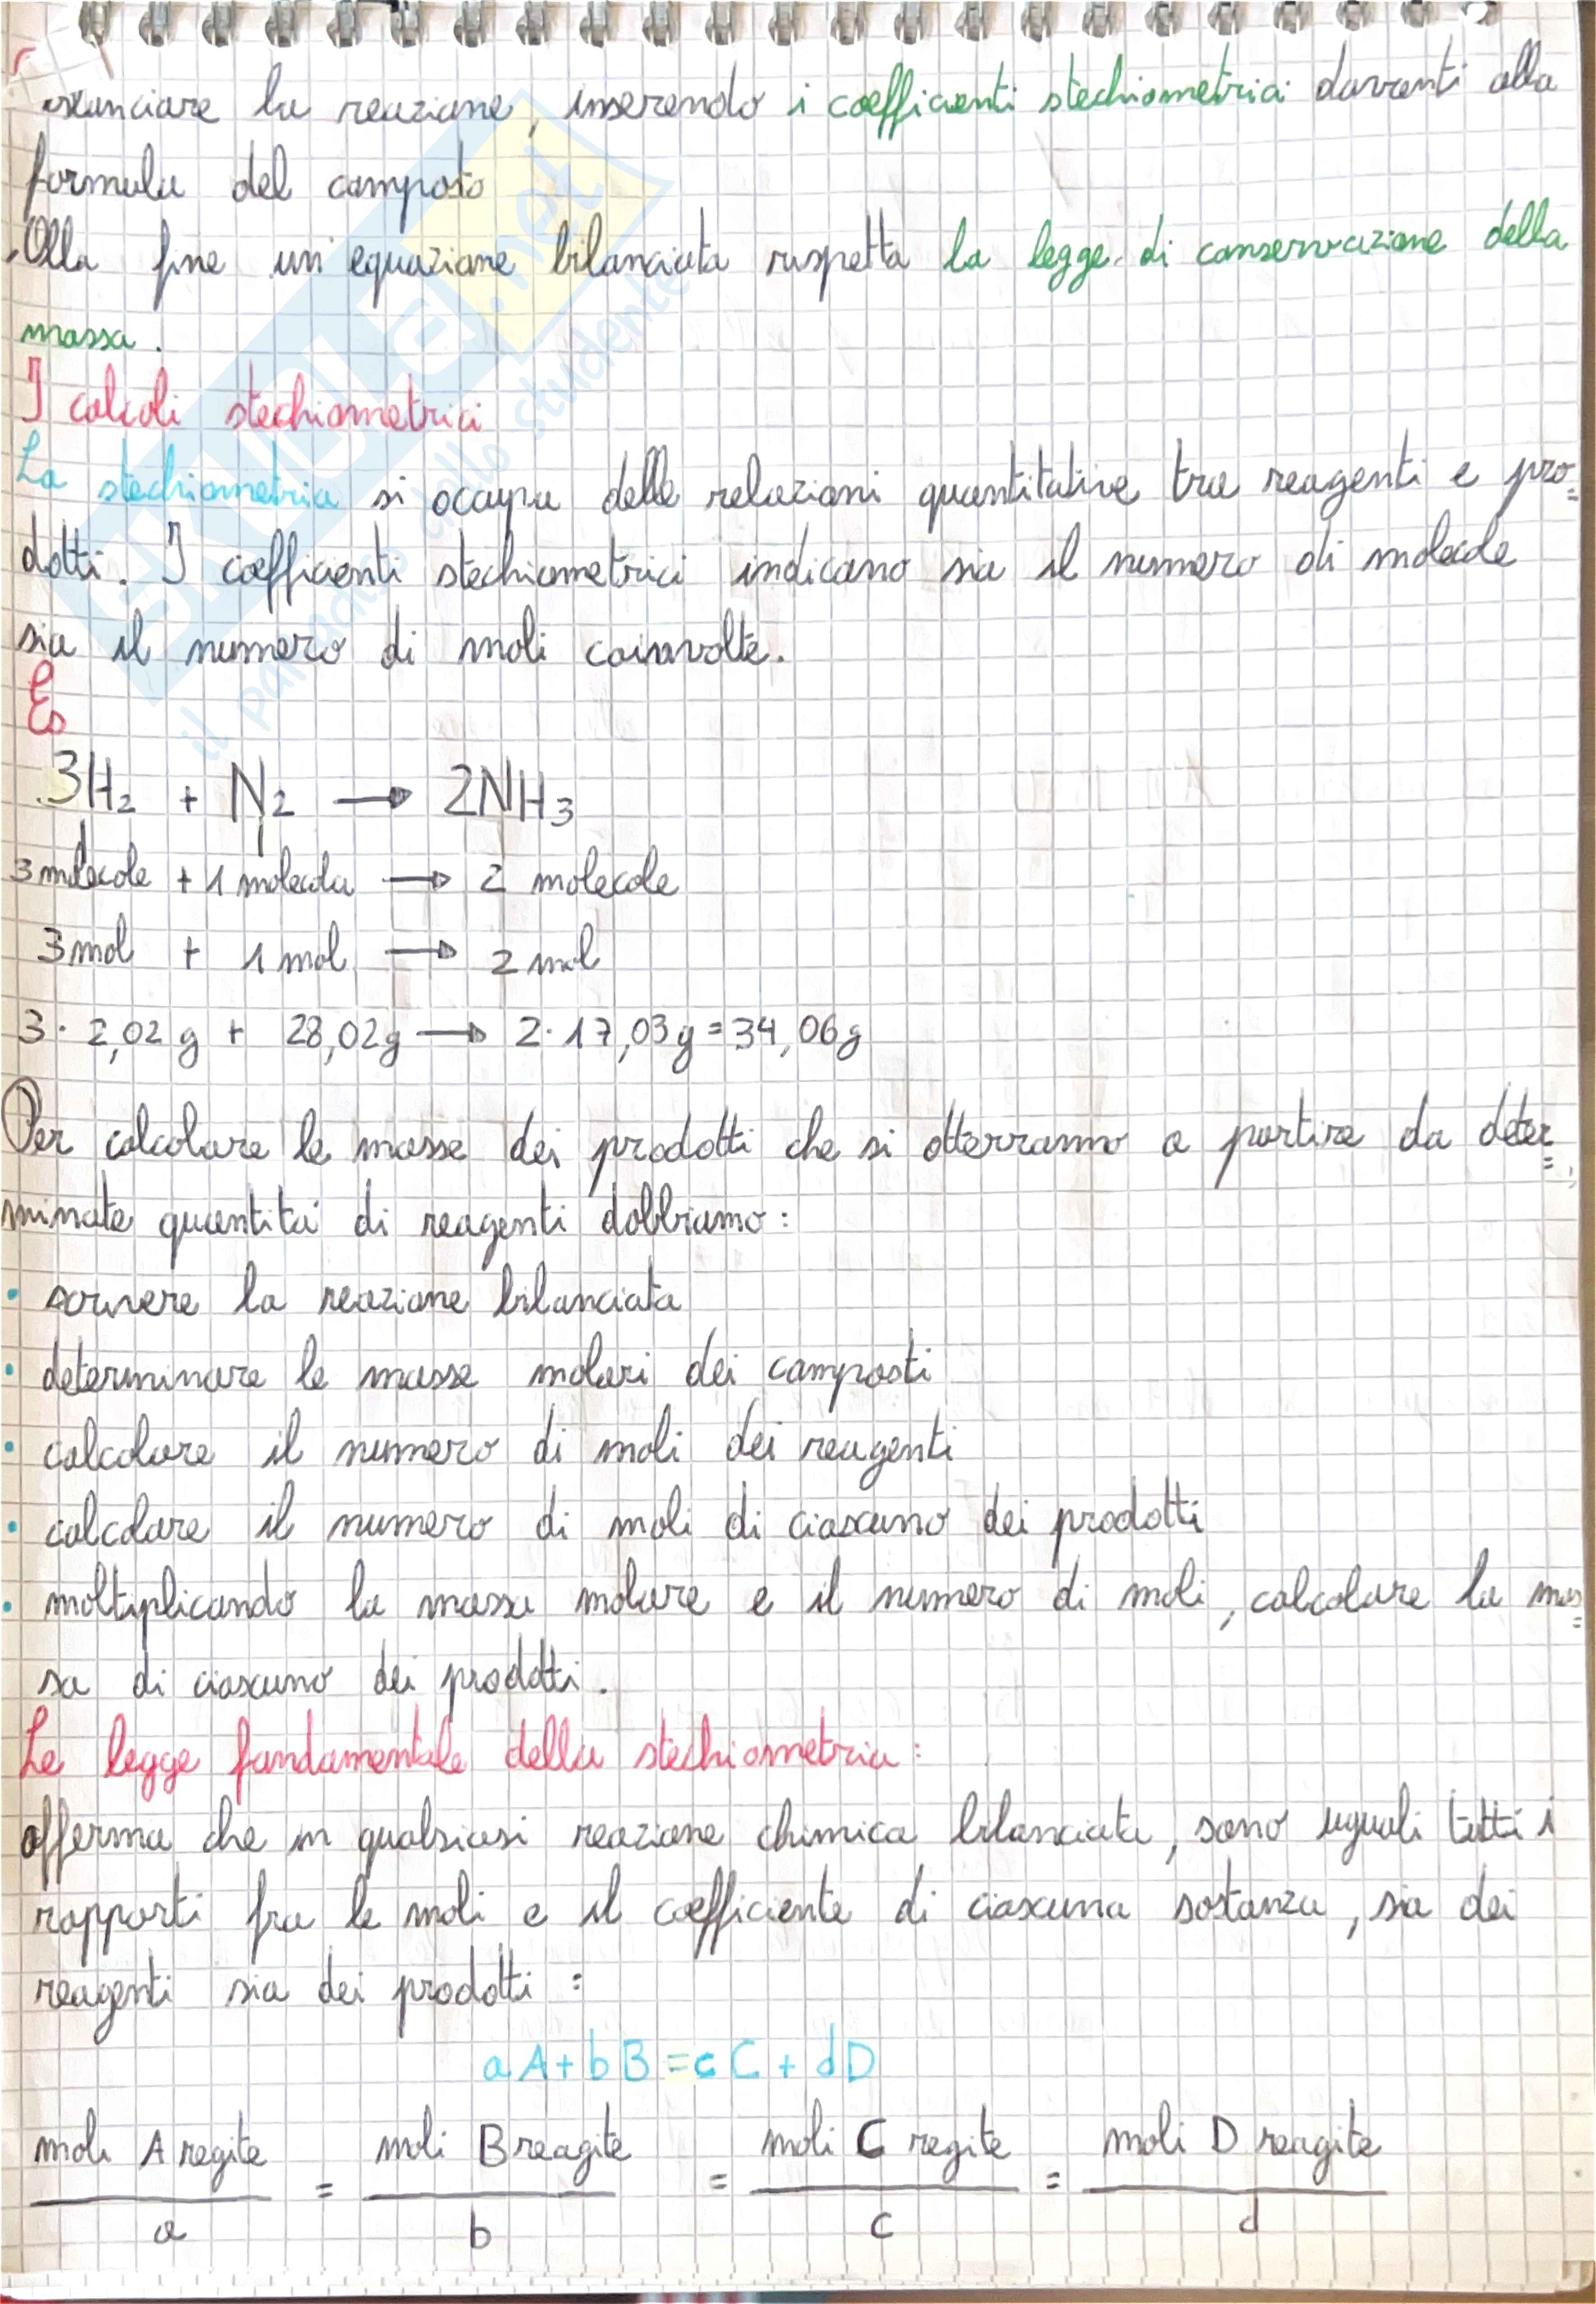 la reazione, inserendo i coefficienti stechiometrici davanti alla
formula del composto
Alla fine un'equazione bilanciata rispetta la legge di conservazione della
massa.
I calcoli stechiometrici
La stechiometria si occupa delle relazioni quantitative tra reagenti e pro=
dotti. I coefficienti stechiometrici indicano sia il numero di molecole
sia il numero di moli coinvolte.
Es
3H₂ + N₂ → 2NH₃
3 molecole + 1 molecola → 2 molecole
3 mol + 1 mol → 2 mol
3 · 2,02 g + 28,02 g → 2 · 17,03 g = 34,06 g
Per calcolare le masse dei prodotti che si otterranno a partire da deter=
minate quantità di reagenti dobbiamo:
• scrivere la reazione bilanciata
• determinare le masse molari dei composti
• calcolare il numero di moli dei reagenti
• calcolare il numero di moli di ciascuno dei prodotti
• moltiplicando la massa molare e il numero di moli, calcolare la mas=
sa di ciascuno dei prodotti.
Le legge fondamentale della stechiometria:
afferma che in qualsiasi reazione chimica bilanciata, sono uguali tutti i
rapporti fra le moli e il coefficiente di ciascuna sostanza, sia dei
reagenti sia dei prodotti:
aA + bB = cC + dD
moli A regite / a = moli B reagite / b = moli C regite / c = moli D reagite / d
SKUOLA.net
il paradiso dello studente